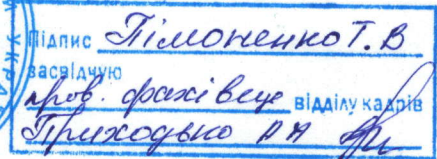 Підпис Пімоненко Т.В
засвідчую
пров. фахівець відділу кадрів
Приходько АА